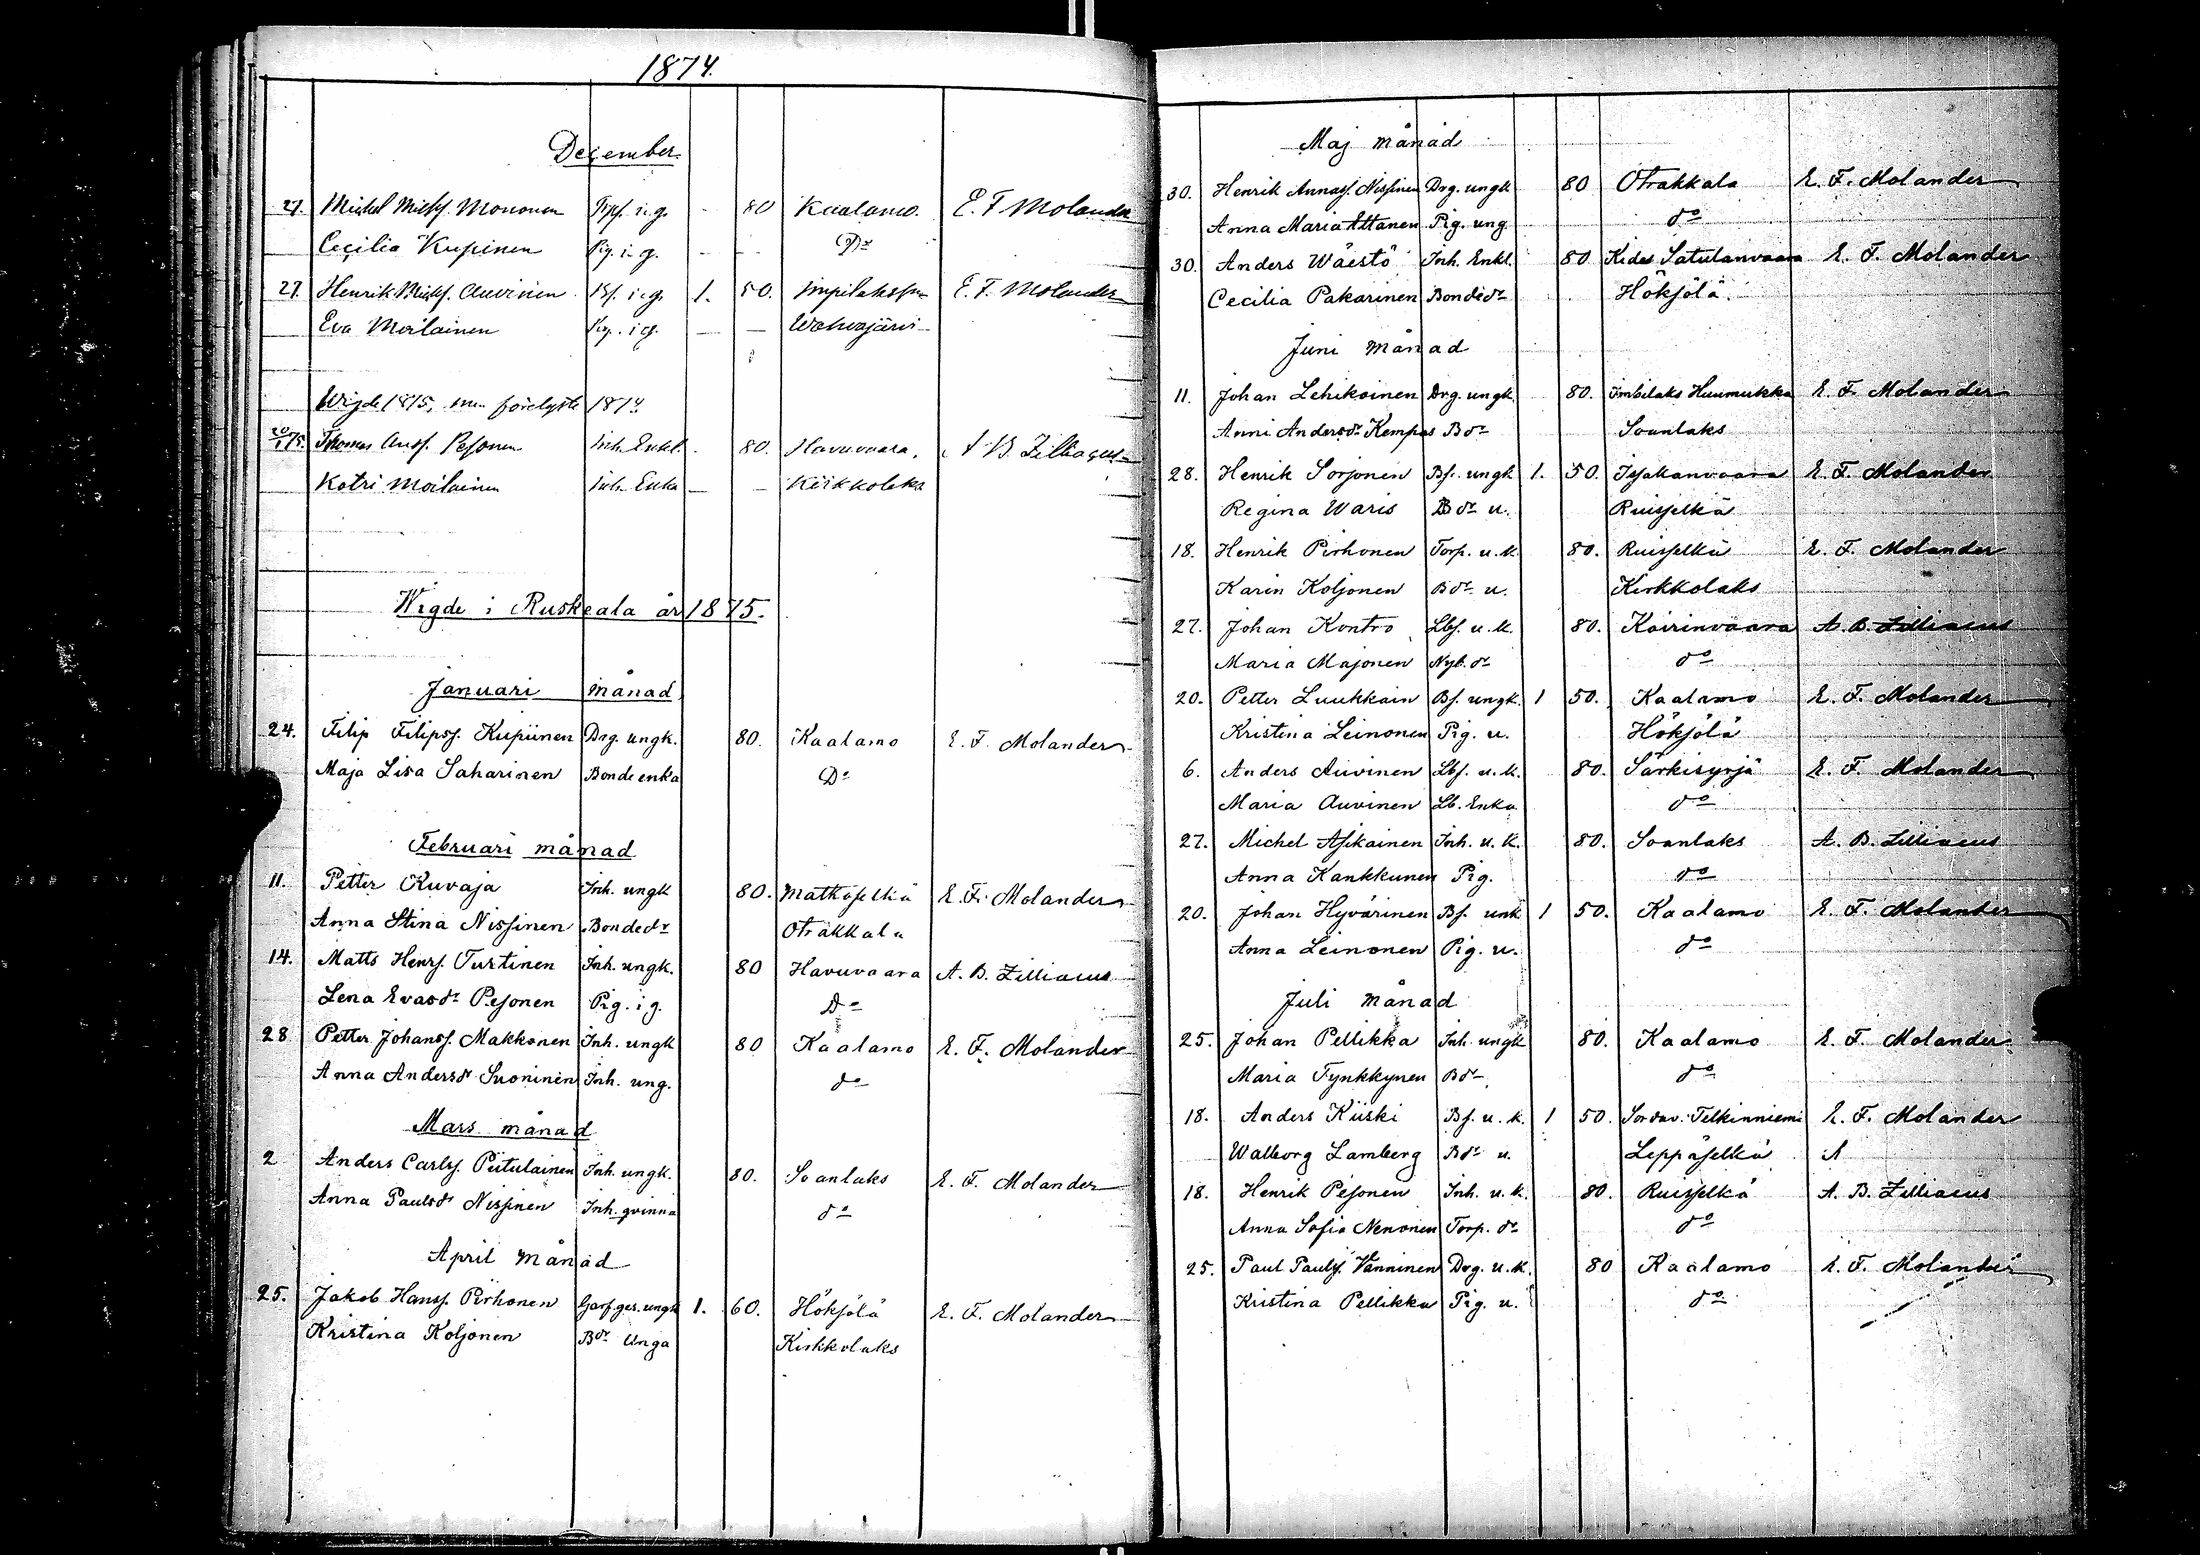 1874.
December.
27. Michel Michs. Mononen Tpf. i.g. - 80 Kaalamo. E. F Molander
Cecilia Kupinen Pig. i g. - - - Do
27. Henrik Michs. Auvinen Bf. i.g. 1. 50. Impilaks E. F. Molander
Eva Moilainen Pig. i g. — — Wahvajärvi
Wigde 1875, men förelyste 1874
20/1 75. Thomas Pesonen Inh. Enkl. 80. Havuvaara. A B. Zilliacus
Katri Moilainen Inh. Enka — — Kirkkolaks
Wigde i Ruskeala år 1875.
Januari månad
24. Filip Filipss. Kupiinen Drg. ungk. 80. Kaalamo E. F. Molander
Maja Lisa Saharinen Bonde enka Do
Februari månad
11. Petter Kuvaja Inh. ungk 80. Matkaselkä E. F. Molander
Anna Stina Nissinen Bondedr Otrakkala
14. Matts Henrs. Turtinen Inh. ungk. 80 Havuvaara A. B. Zilliacus
Lena Evasdr Pesonen Pig. i g. Do
28 Petter Johanss. Makkonen Inh. ungk 80 Kaalamo E. F. Molander
Anna Andersdr Suoninen Inh. ung. do
Mars månad
2 Anders Carls. Piitulainen Inh. ungk. 80. Soanlaks E. F. Molander
Anna Paulsdr Nissinen Inh. qvinna do
April månad
25. Jakob Hanss. Pirhonen ungk 1. 60. Hökjölä E. F. Molander
Kristina Koljonen Bdr Unga Kirkkolaks
Maj månad
30. Henrik Annass. Nissinen Drg. ungk 80 Otrakkala E. F. Molander
Anna Maria Attanen Pig. ung do
30. Anders Wäestö Inh. Enkl. 80 Kides Satulanvaara E. F. Molander
Cecilia Pakarinen Bondedr Hökjölä.
Juni månad
11. Johan Lehikoinen Drg. ungk 80. Imbilaks Huumukka E. F. Molander
Anni Andersdr Kempas Bdr Soanlaks
28. Henrik Sorjonen Bf. ungk 1. 50. Issakanvaara E. F. Molander
Regina Waris Bdr u. Ruisselkä
18. Henrik Pirhonen Torp. u.k. 80. Ruisselkä E. F. Molander
Karin Koljonen Bdr u. Kirkkolaks
27. Johan Kontro Lbf. u.k. 80. Koirinvaara A. B. Zilliacus
Maria Majonen Nyb. dr do
20. Petter Luukkain Bf. ungk. 1 50. Kaalamo E. F. Molander
Kristina Leinonen Pig. u. Hökjölä
6. Anders Auvinen Lbf. u.k. 80. Särkisyrjä E. F. Molander
Maria Auvinen Lb. Enka do
27. Michel Asikainen Inh. u. k. 80. Soanlaks A. B. Zilliacus
Anna Kankkunen Pig. do
20. Johan Hyvärinen Bf. unk 1 50. Kaalamo E. F. Molander
Anna Leinonen Pig. u. do
Juli månad
25. Johan Pellikka Inh. ungk 80. Kaalamo E. F. Molander
Maria Tynkkynen Bdr do
18. Anders Kiiski Bf. u. k. 1 50. Sordav. Telkinniemi E. F. Molander
Walborg Lamberg Bdr u. Leppäselkä A
18. Henrik Pesonen Inh. u. k. 80. Ruisselkä A. B. Zilliacus
Anna Sofia Nenonen Torp. dr do
25. Paul Pauls. Vänninen Drg. u.k. 80 Kaalamo E. F. Molander
Kristina Pellikka Pig. u. do